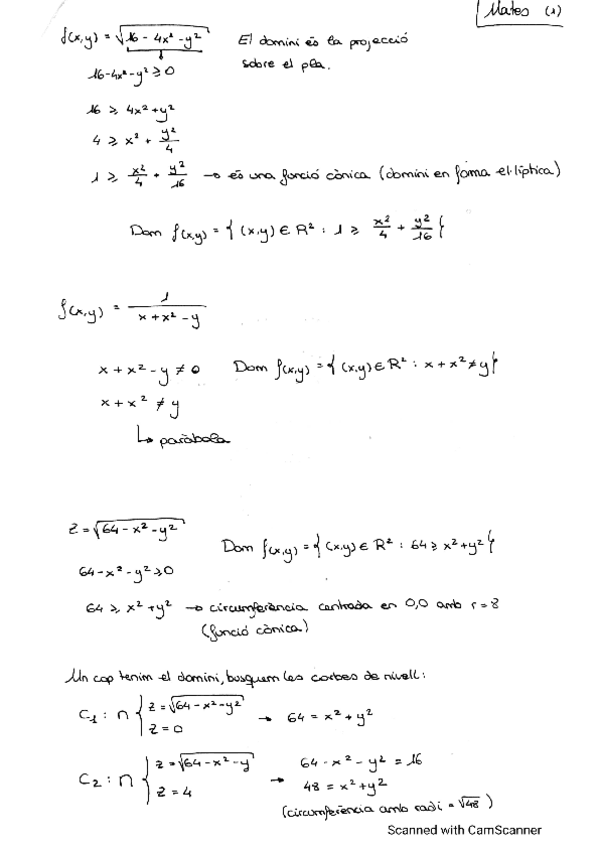 Mates (1)
f(x,y) = √16 - 4x² - y² El domini és la projecció
sobre el pla.
16-4x²-y² ≥ 0
16 ≥ 4x²+y²
4 ≥ x² + y²/4
1 ≥ x²/4 + y²/16 → és una funció cònica (domini en forma el·líptica)
Dom f(x,y) = { (x,y) ∈ R² : 1 ≥ x²/4 + y²/16 }
f(x,y) = 1/(x+x²-y)
x + x² - y ≠ 0 Dom f(x,y) = { (x,y) ∈ R² : x + x² ≠ y }
x + x² ≠ y
↳ paràbola
z = √64 - x² - y²
Dom f(x,y) = { (x,y) ∈ R² : 64 ≥ x²+y² }
64 - x² - y² ≥ 0
64 ≥ x² + y² → circumferència centrada en 0,0 amb r = 8
(funció cònica)
Un cop tenim el domini, busquem les corbes de nivell:
C₁ : ∩ { z = √64 - x² - y² z = 0 → 64 = x² + y²
C₂ : ∩ { z = √64 - x² - y z = 4 → 64 - x² - y² = 16
48 = x² + y²
(circumferència amb radi = √48)
Scanned with CamScanner